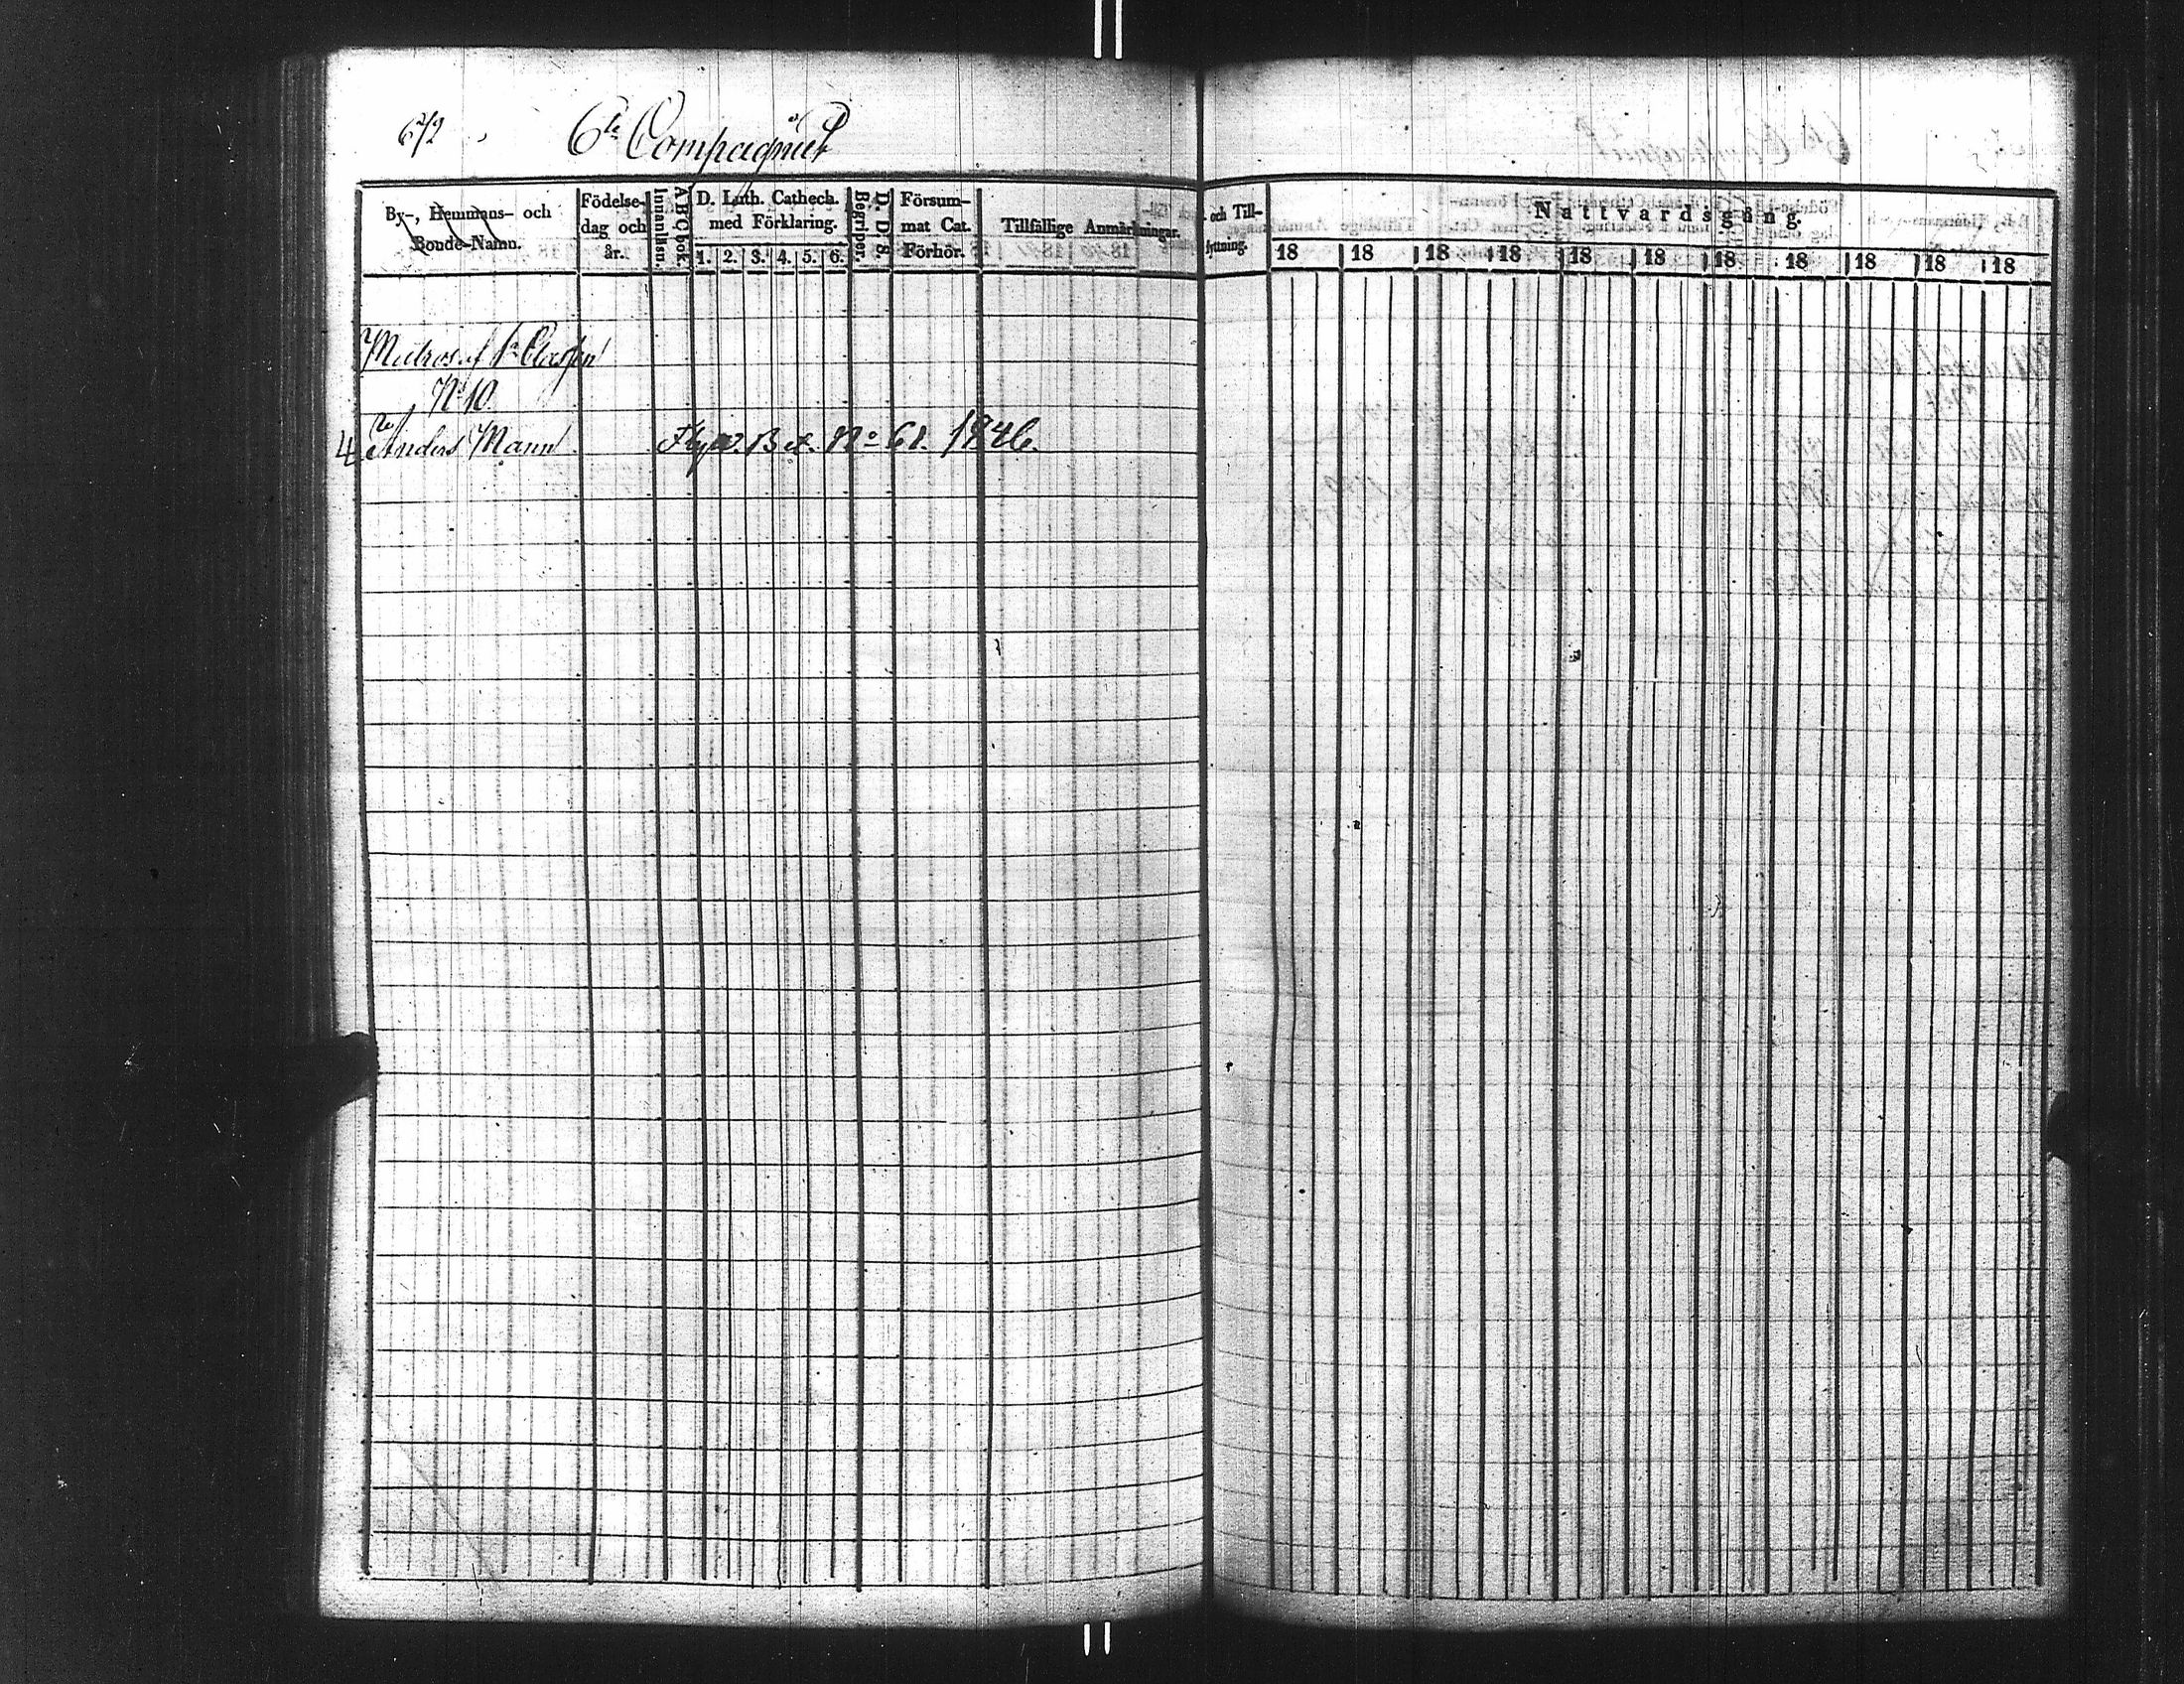 672
6te Compagniet
By-, Hemmans- och Bonde-Namn.
Födelse- dag och år.
Innanläsn.
ABC bok.
D. Luth. Cathech. med Förklaring.
1. 2. 3. 4. 5. 6.
Begriper.
D. D. S.
Försum- mat Cat. Förhör.
Tillfällige Anmärkningar.
och Till-
flyttning.
Nattvardsgång.
18 18 18 18 18 18 18 18 18 18 18
Matros af 1a Classen
No 10
4 Anders Mann Flytt. Bet. No 61. 1846.